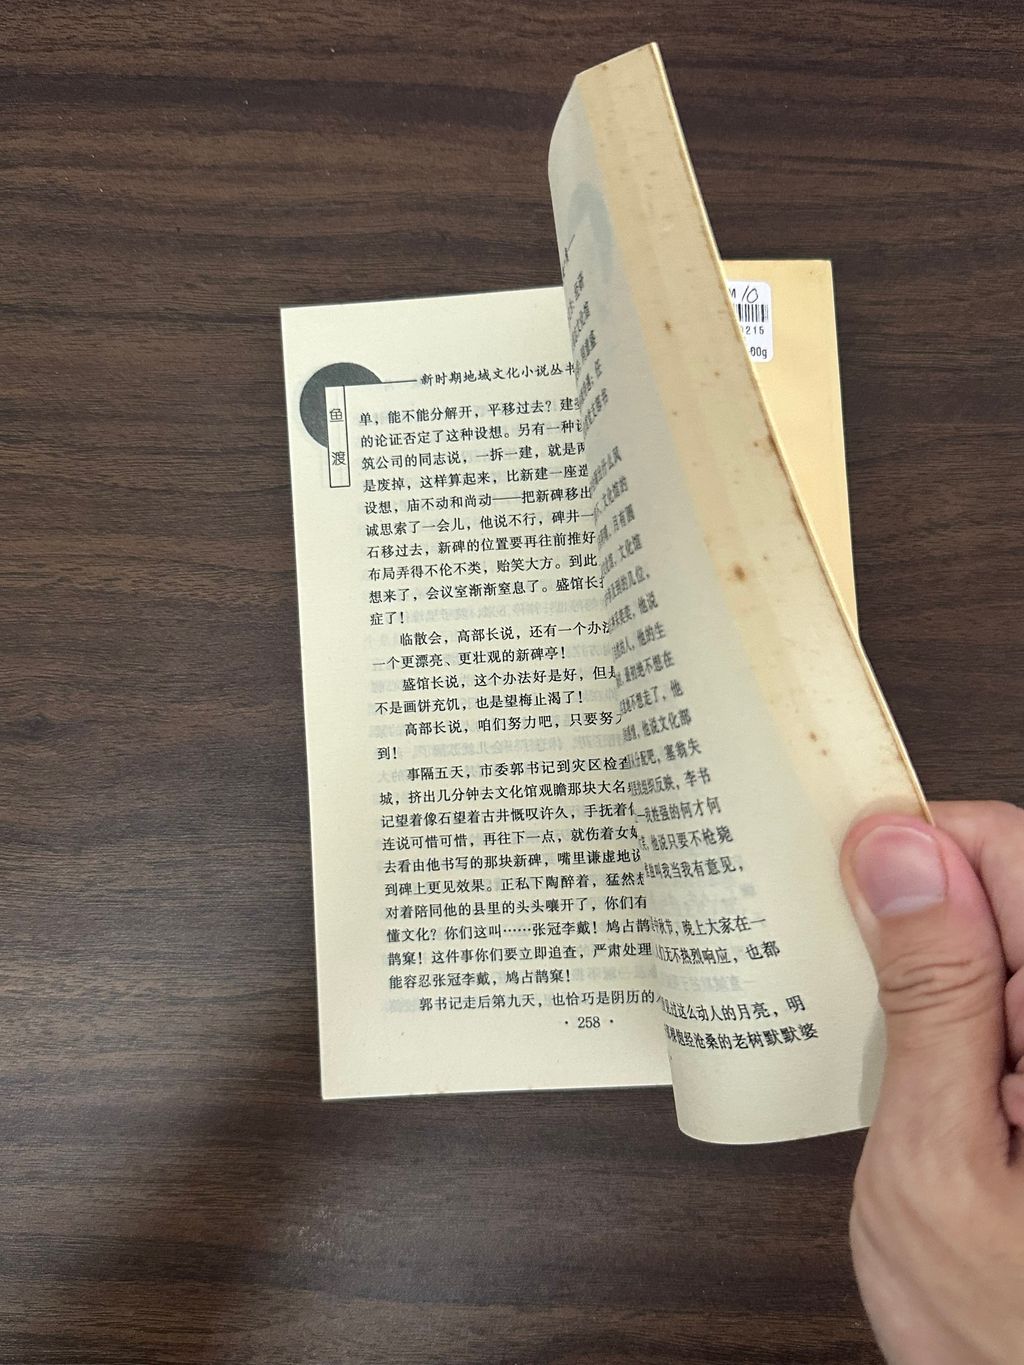 新时期地域文化小说丛书
鱼渡
单，能不能分解开，平移过去？建
的论证否定了这种设想。另有一种
筑公司的同志说，一拆一建，就是两
是废掉，这样算起来，比新建一座造
设想，庙不动和尚动——把新碑移出
诚思索了一会儿，他说不行，碑井一
石移过去，新碑的位置要再往前推好
布局弄得不伦不类，贻笑大方。到此
想来了，会议室渐渐窒息了。盛馆长
症了！
临散会，高部长说，还有一个办法
一个更漂亮、更壮观的新碑亭！
盛馆长说，这个办法好是好，但是
不是画饼充饥，也是望梅止渴了！
高部长说，咱们努力吧，只要努力
到！
事隔五天，市委郭书记到灾区检查
城，挤出几分钟去文化馆观瞻那块大名
记望着像石望着古井慨叹许久，手抚着
连说可惜可惜，再往下一点，就伤着女
去看由他书写的那块新碑，嘴里谦虚地说
到碑上更见效果。正私下陶醉着，猛然
对着陪同他的县里的头头嚷开了，你们有
懂文化？你们这叫……张冠李戴！鸠占鹊
鹊窠！这件事你们要立即追查，严肃处理
能容忍张冠李戴，鸠占鹊窠！
郭书记走后第九天，也恰巧是阴历的
·258·
什么风
文化馆的
月有圆
文化馆
的几位，
他说
他的生
不想在
不想走了，他
他说文化部
分配吧，塞翁失
组织反映，李书
姓强的何才何
他说只要不枪毙
叫我当我有意见，
秋节，晚上大家在一
们无不热烈响应，也都
过这么动人的月亮，明
饱经沧桑的老树默默婆
10
215
00g